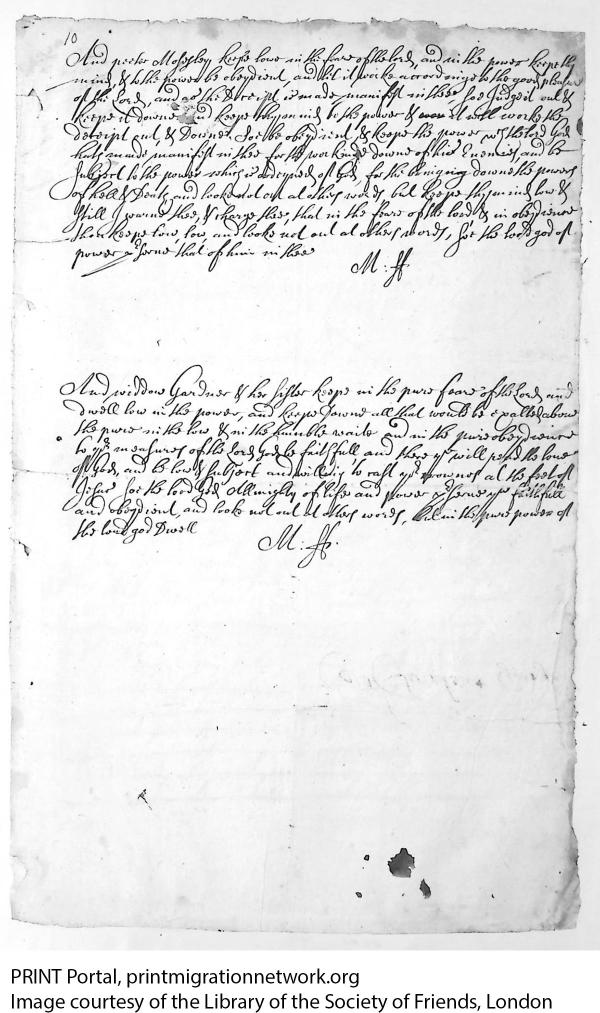 10
And peeter Moseley keepe lowe in the feare of the lord, and in the power keepe thy
mind, & to the power be obeydient, and let it worke accordinge to the good pleasure
of the Lord, and as the Deceipt is made manifest in thee, soe Judge it out &
keepe it downe and keepe thy mind to the power & it will worke the
deceipt out, & Downe. Soe be obeydient, & keepe the power, wch the Lord God
hath made manifest in thee for the workinge downe of his Enemies and be
subject to the power which is of God, for the bringing downe the powers
of hell & Death, and looke not out at others words but keepe thy mind low &
still I warne thee, & charge thee, that in the feare of the lord & in obedience
thou keepe low, low, and looke not out at others words, soe the lord god of
power pserve that of him in thee
M: ff
And widdow Gardner & her sister keepe in the pure feare of the Lord, and
dwell low in the power, and keepe downe all that would be exalted above
the pure in the low, & in the humble waite and in the pure obeydience
to yr measures of the Lord God be faithfull and there ye will the love
of God, and be low & subject and willing to cast yr crownes at the feet of
Jesus soe the lord God Allmighty of life and power pserve you faithfull
and obeydient, and looke not out at others words, but in the pure power of
the lord god Dwell
M: ff:
PRINT Portal, printmigrationnetwork.org
Image courtesy of the Library of the Society of Friends, London